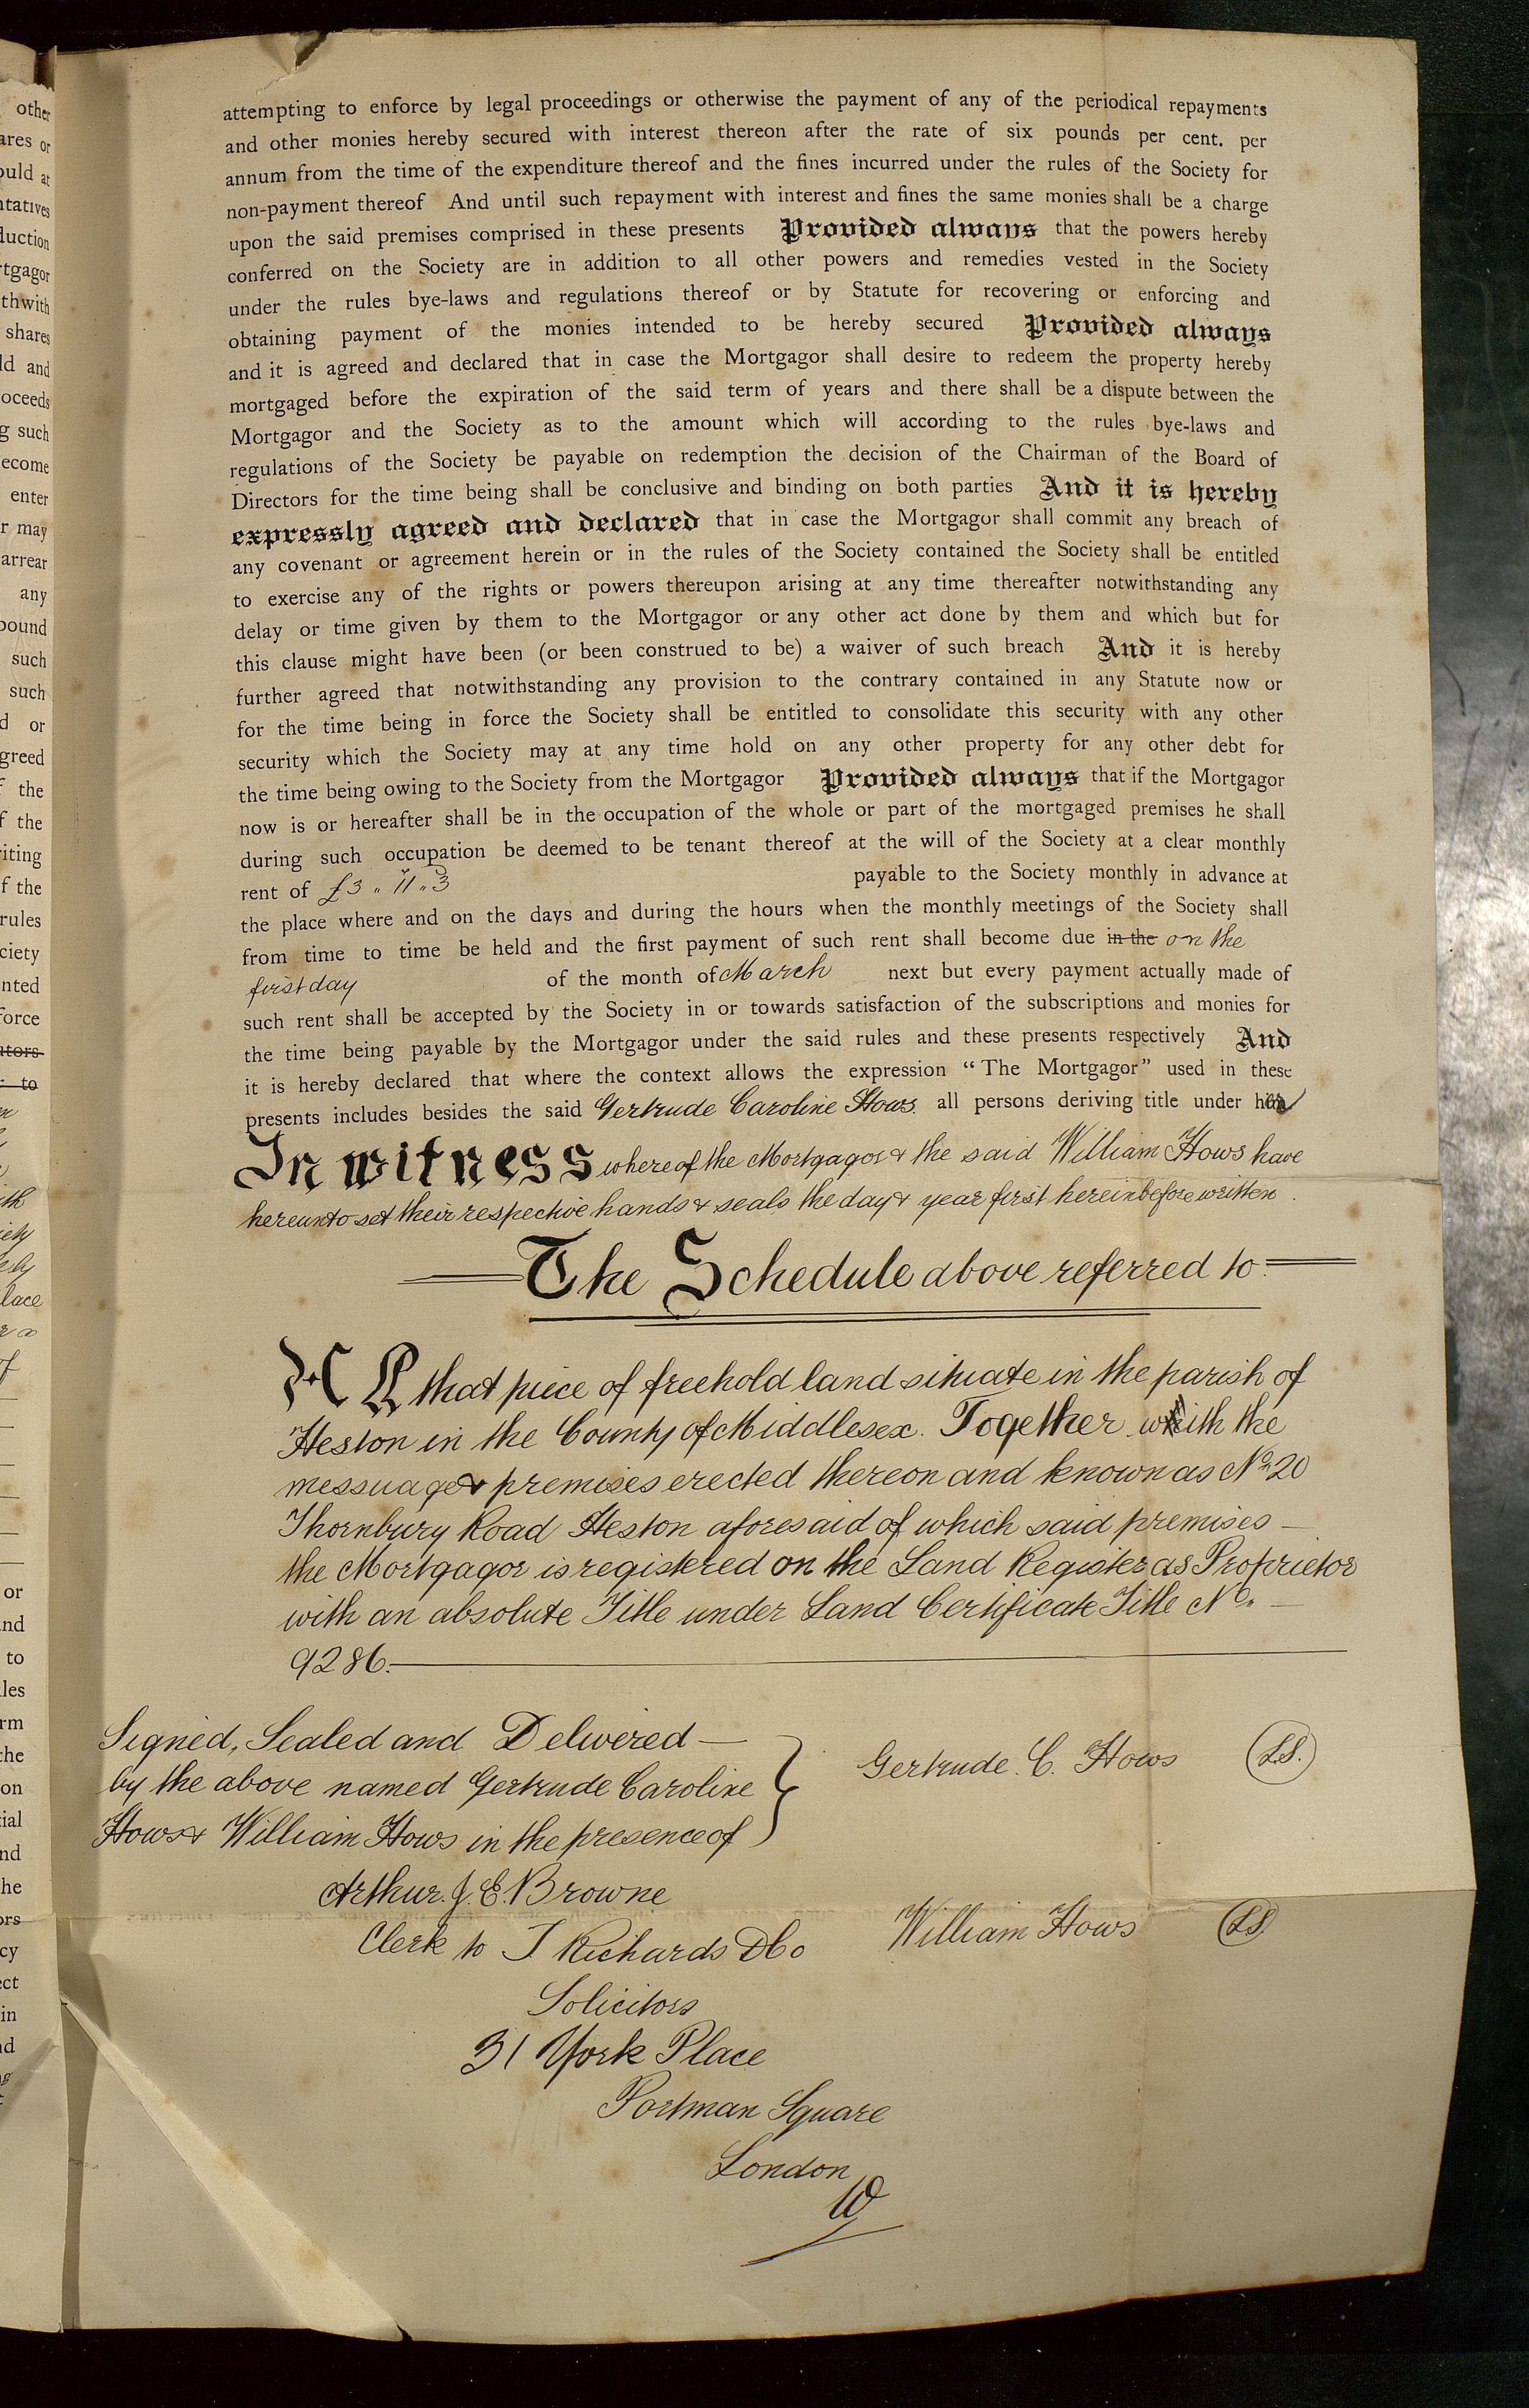 other
ares or
ould at
ntatives
duction
rtgagor
thwith
shares
ld and
oceeds
g such
ecome
enter
r may
arrear
any
pound
such
such
d or
greed
f the
f the
riting
f the
rules
ciety
nted
force
ators
r to
lace
of
or
and
to
les
rm
che
on
cial
nd
he
ors
cy
ect
in
nd
attempting to enforce by legal proceedings or otherwise the payment of any of the periodical repayments
and other monies hereby secured with interest thereon after the rate of six pounds per cent. per
annum from the time of the expenditure thereof and the fines incurred under the rules of the Society for
non-payment thereof And until such repayment with interest and fines the same monies shall be a charge
upon the said premises comprised in these presents Provided always that the powers hereby
conferred on the Society are in addition to all other powers and remedies vested in the Society
under the rules bye-laws and regulations thereof or by Statute for recovering or enforcing and
obtaining payment of the monies intended to be hereby secured Provided always
and it is agreed and declared that in case the Mortgagor shall desire to redeem the property hereby
mortgaged before the expiration of the said term of years and there shall be a dispute between the
Mortgagor and the Society as to the amount which will according to the rules bye-laws and
regulations of the Society be payable on redemption the decision of the Chairman of the Board of
Directors for the time being shall be conclusive and binding on both parties And it is hereby
expressly agreed and declared that in case the Mortgagor shall commit any breach of
any covenant or agreement herein or in the rules of the Society contained the Society shall be entitled
to exercise any of the rights or powers thereupon arising at any time thereafter notwithstanding any
delay or time given by them to the Mortgagor or any other act done by them and which but for
this clause might have been (or been construed to be) a waiver of such breach And it is hereby
further agreed that notwithstanding any provision to the contrary contained in any Statute now or
for the time being in force the Society shall be entitled to consolidate this security with any other
security which the Society may at any time hold on any other property for any other debt for
the time being owing to the Society from the Mortgagor Provided always that if the Mortgagor
now is or hereafter shall be in the occupation of the whole or part of the mortgaged premises he shall
during such occupation be deemed to be tenant thereof at the will of the Society at a clear monthly
rent of £3 " 11 " 3 payable to the Society monthly in advance at
the place where and on the days and during the hours when the monthly meetings of the Society shall
from time to time be held and the first payment of such rent shall become due in the on the
first day of the month of March next but every payment actually made of
such rent shall be accepted by the Society in or towards satisfaction of the subscriptions and monies for
the time being payable by the Mortgagor under the said rules and these presents respectively And
it is hereby declared that where the context allows the expression "The Mortgagor" used in these
presents includes besides the said Gertrude Caroline Hows all persons deriving title under her
In witness whereof the Mortgagor & the said William Hows have
hereunto set their respective hands & seals the day & year first hereinbefore written.
The Schedule above referred to.
All that piece of freehold land situate in the parish of
Heston in the County of Middlesex. Together with the
messuage & premises erected thereon and known as No. 20
Thornbury Road Heston aforesaid of which said premises
the Mortgagor is registered on the Land Register as Proprietor
with an absolute Title under Land Certificate Title No.
9286.
Signed, Sealed and Delivered
by the above named Gertrude Caroline
Hows & William Hows in the presence of
Gertrude. C. Hows L.S.
Arthur. J. E. Browne
Clerk to T Richards & Co
William Hows L.S.
Solicitors
31 York Place
Portman Square
London
W